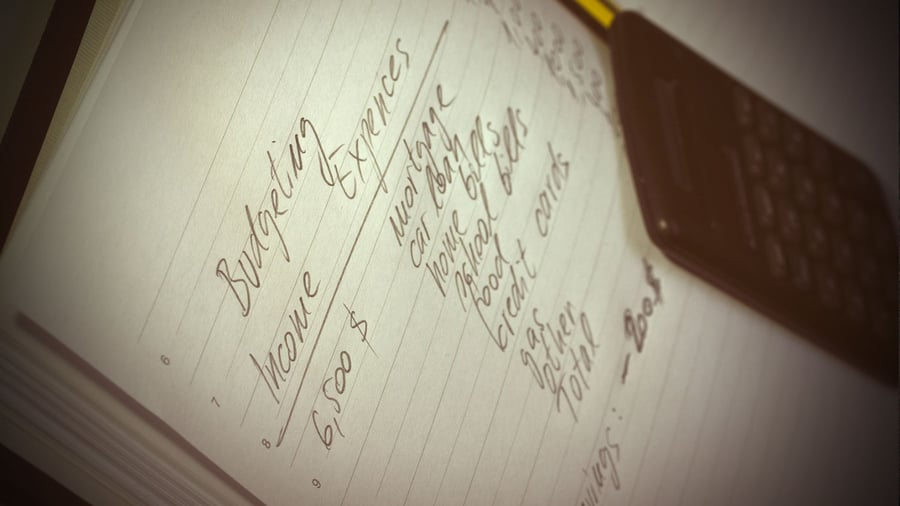 Budgeting
Income & Expences
6,500 $ mortgage
car loan
home bills
school bills
food
credit cards
gas
other
Total
- 200$
6
7
8
9